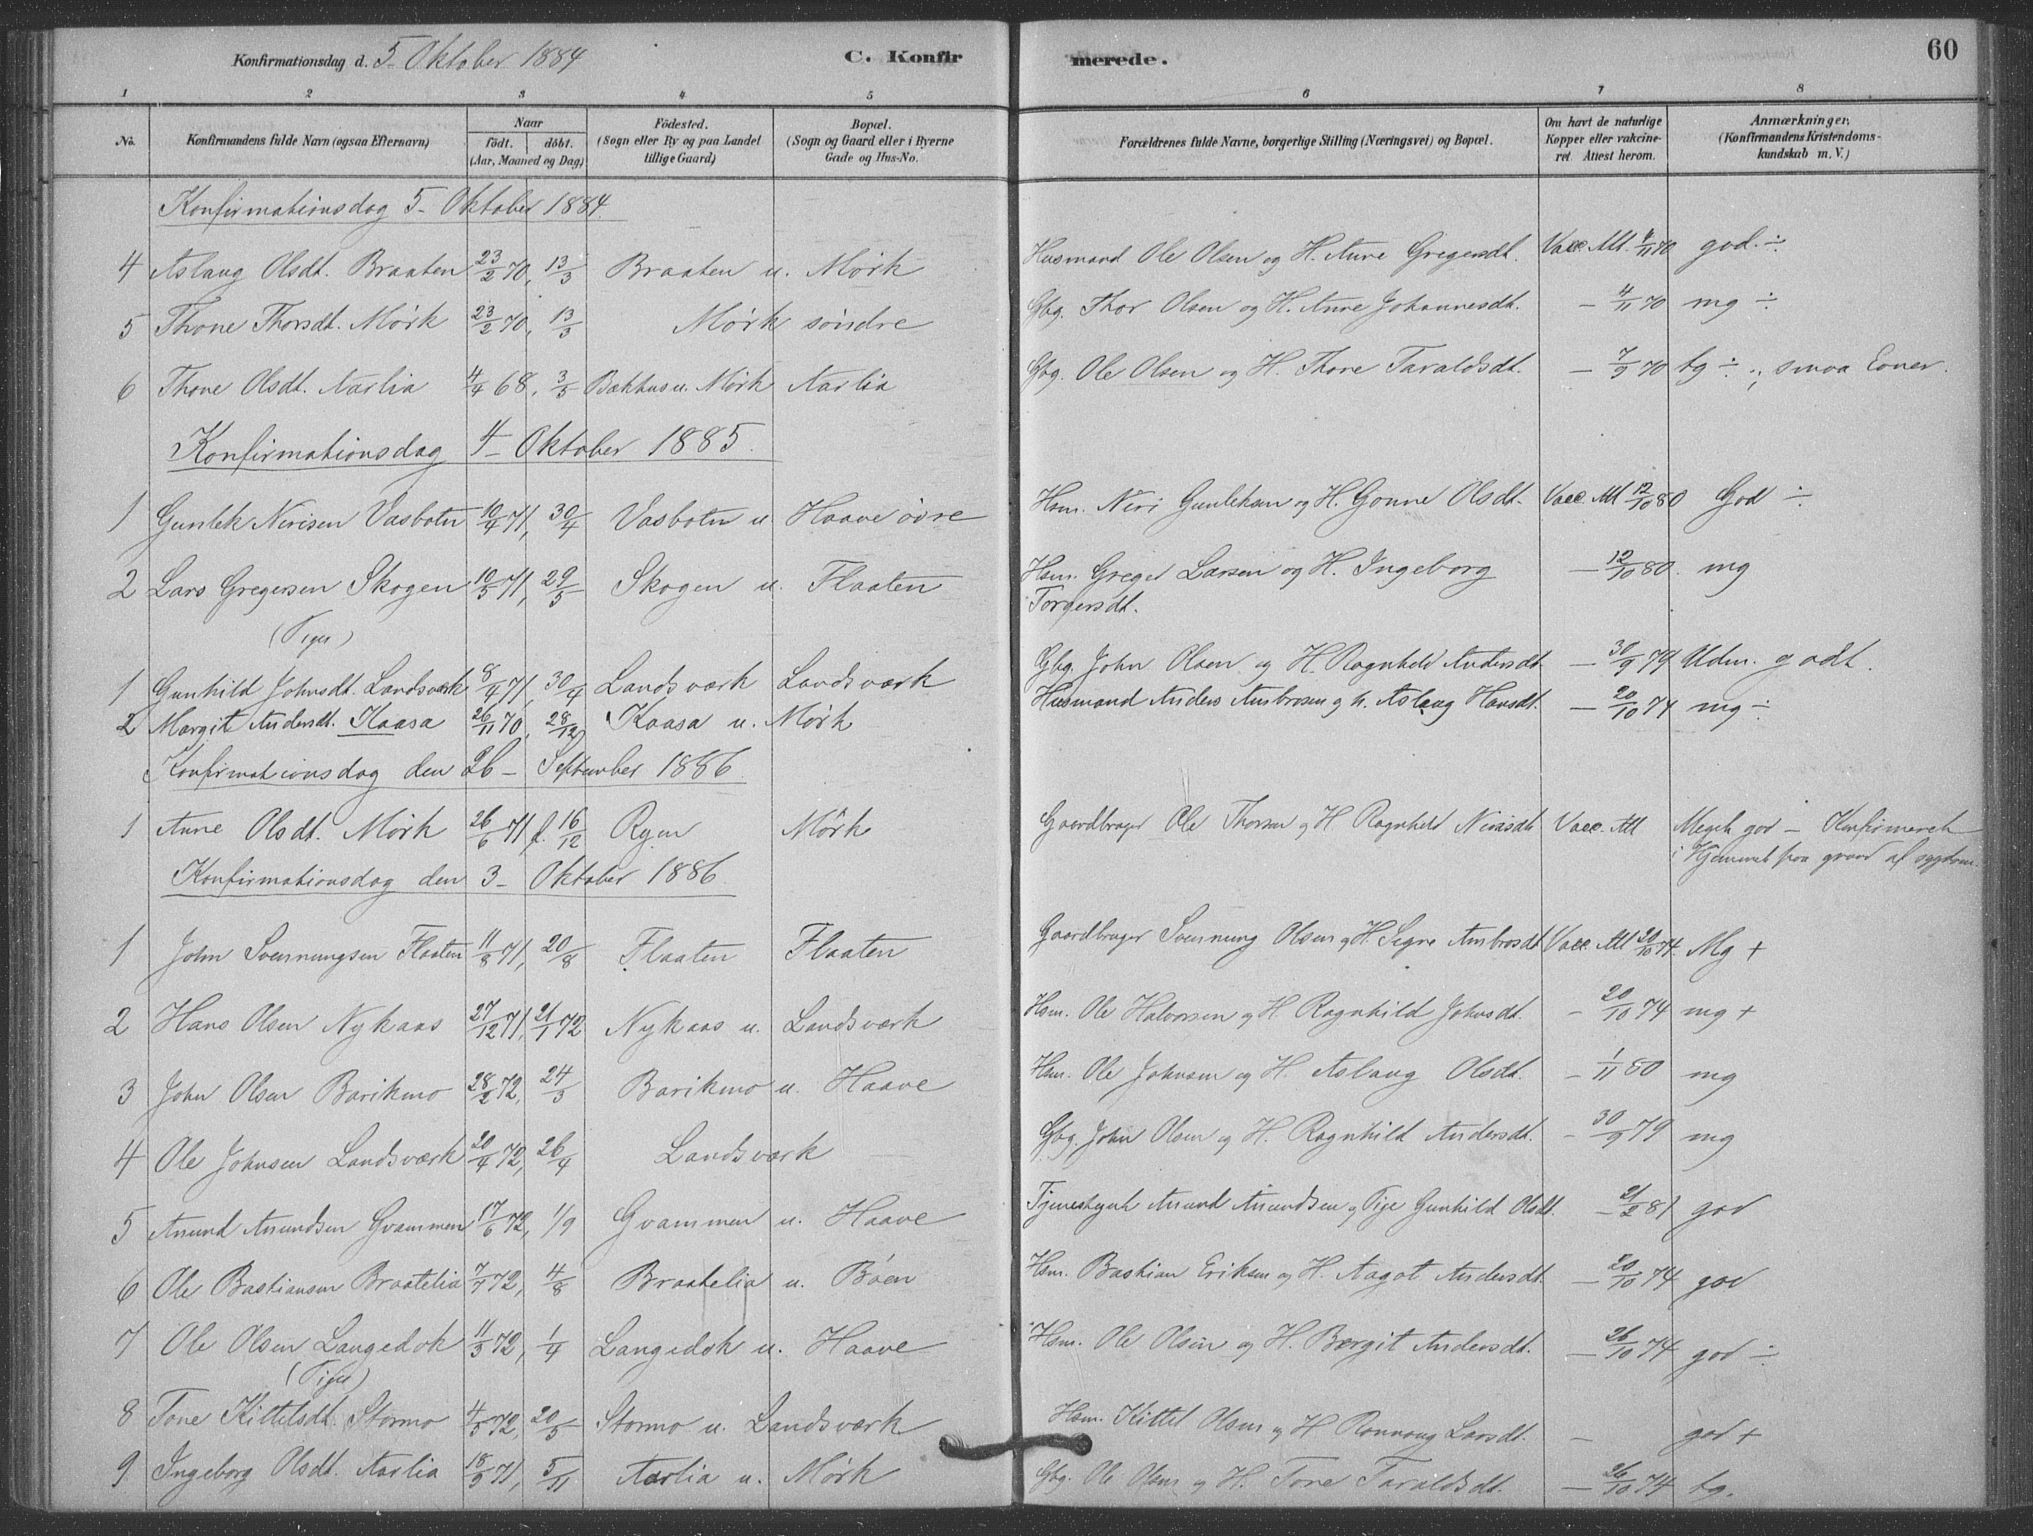 Konfirmationsdag d. 5- Oktober 1884 C. Konfirmerede. 60
1 2 3 4 5 6 7 8
No. Konfirmandens fulde Navn (ogsaa Efternavn) Naar födt. döbt. (Aar, Maaned og Dag) Födested. (Sogn eller By og paa Landet tillige Gaard) Bopæl. (Sogn og Gaard eller i Byerne Gade og Hus-No. Forældrenes fulde Navne, borgerlige Stilling (Næringsvei) og Bopæl. Om havt de naturlige Kopper eller vakcineret Attest herom. Anmærkninger. (Konfirmandens Kristendomskundskab m. V.)
Konfirmationsdag 5- Oktober 1884.
4 Aslaug Olsdt. Braaten 23/2 70, 13/3 Braaten u. Mørk Husmand Ole Olsen og H. Anne Gregersdt. Vacc. Att. 4/11 70 god. ÷
5 Thone Thorsdt. Mørk 23/2 70, 13/3 Mørk söndre Gbg. Thor Olsen og H. Anne Johannesdt. — 4/11 70 mg ÷
6 Thone Olsdt. Aarlia 4/4 68, 3/5 Bakhus u. Mørk Aarlia Gbg. Ole Olsen og H. Thone Taraldsdt. — 7/9 70 tg ÷ ; smaa Evner.
Konfirmationsdag 4- Oktober 1885.
1 Gunlek Nirisen Vasbotn 10/4 71, 30/4 Vasbotn u. Haave övre Hsm. Niri Gunleksen og H. Gonne Olsdt. Vacc. Att 12/10 80 God ÷
2 Lars Gregersen Skogen 10/5 71, 29/5 Skogen u. Flaaten Hsm. Greger Larsen og H. Ingeborg Torgersdt. — 12/10 80. mg
(Piger)
1 Gunhild Johnsdt. Landsværk 8/4 71, 30/4 Landsværk Landsværk Gbg. John Olsen og H. Ragnhild Andersdt. — 30/9 79 Udm. godt.
2 Margit Andersdt. Kaasa 26/11 70, 28/12 Kaasa u. Mørk Husmand Anders Ambrosen og h. Aslaug Hansdt. — 20/10 74 mg ÷
Konfirmationsdag den 26- September 1886
1 Anne Olsdt. Mørk 26/6 71 f. 16/12 Ryen Mörk Gaardbruger Ole Thorsen og H Ragnhild Nirisdt. Vacc. Att Meget god — Konfirmeret i Hjemmet paa grund af sygdom.
Konfirmationsdag den 3- Oktober 1886
1 John Svennungsen Flaaten 11/8 71, 20/8 Flaaten Flaaten Gaardbruger Svennung Olsen og H. Signe Ambrosdt. Vacc. Att 20/10 74. Mg +
2 Hans Olsen Nykaas 27/12 71, 21/1 72 Nykaas u. Landsværk Hsm. Ole Halvorsen og H. Ragnhild Johnsdt. — 20/10 74 mg +
3 John Olsen Barikmo 28/2 72, 24/3 Barikmo u. Haave Hsm. Ole Johnsen og H. Aslaug Olsdt. — 1/11 80 mg
4 Ole Johnsen Landsværk 20/4 72, 26/4 Landsværk Gbg. John Olsen og H. Ragnhild Andersdt. — 30/9 79 mg
5 Amund Amundsen Gvammen 17/6 72, 1/9 Gvammen u. Haave Tjenestegut Amund Amundsen og Pige Gunhild Olsdt. — 21/2 81 god
6 Ole Bastiansen Braatelia 7/7 72, 4/8 Braatelia u. Böen Hsm. Bastian Eriksen og H. Aagot Andersdt. — 20/10 74 god
7 Ole Olsen Langedok 11/3 72, 1/4 Langedok u. Haave Hsm. Ole Olsen og H. Bergit Andersdt. — 26/10 74 god ÷
(Piger)
8 Tone Kittelsdt. Stormo 4/5 72, 20/5 Stormo u. Landsværk Hsm. Kittel Olsen og H Rannaug Larsdt. — god +
9 Ingeborg Olsdt. Aarlia 18/9 71, 5/11 Aarlia u. Mörk Gbg. Ole Olsen og H. Tone Taraldsdt. — 26/10 74 tg.